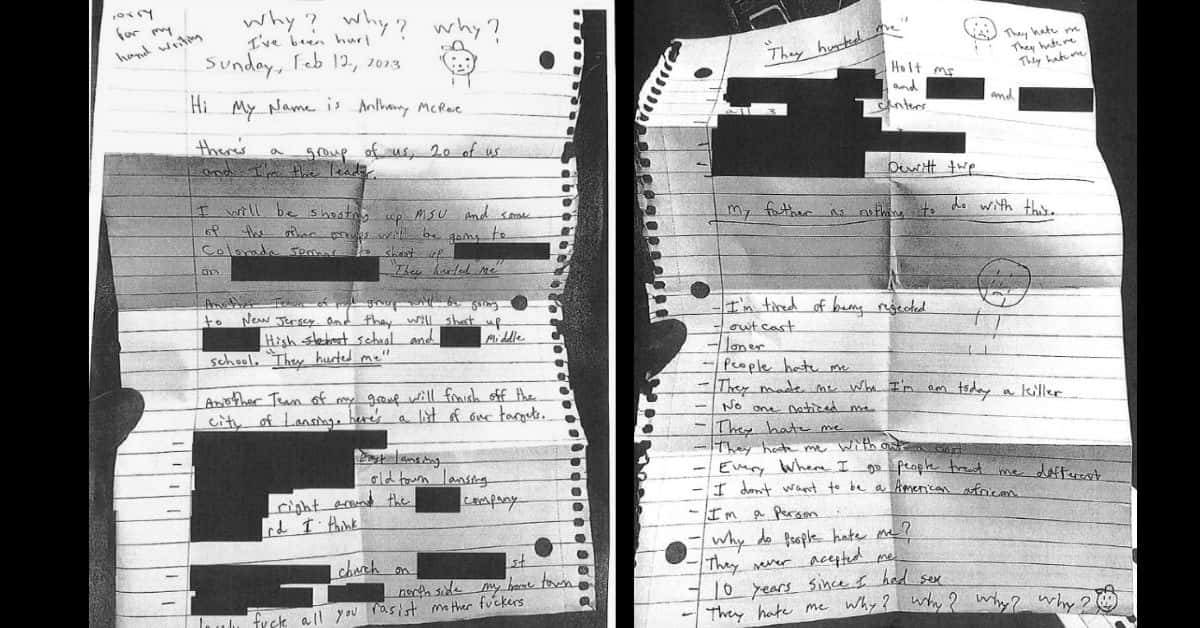 sorry
for my
hand writing
Why? Why? Why?
I've been hurt
Sunday, Feb 12, 2023
Hi My Name is Anthony McRae
there's a group of us, 20 of us
and I'm the leader.
I will be shooting up MSU and some
of the other groups will be going to
Colorada springs to shoot up
on "They hurted me"
Another Team of my group will be going
to New Jersey and they will shoot up
High school and Middle
school. "They hurted me"
Another Team of my group will finish off the
city of Lansing. here's a list of our targets.
East lansing
old town lansing
right around the company
rd I think
church on st
north side my home town
fuck all you rasist mother fuckers
"They hurted me"
They hate me
They hate me
They hate me
Holt ms
and and
all 3 centers
Dewitt twp
my father is nothing to do with this.
- I'm tired of being rejected
- outcast
- loner
- People hate me
- They made me who I'm am today a killer
- No one noticed me
- They hate me
- They hate me without a
- Every Where I go people treat me different
- I don't want to be a American african
- I'm a Person
- Why do people hate me?
- They never acepted me
- 10 years since I had sex
- They hate me why? why? why? why?